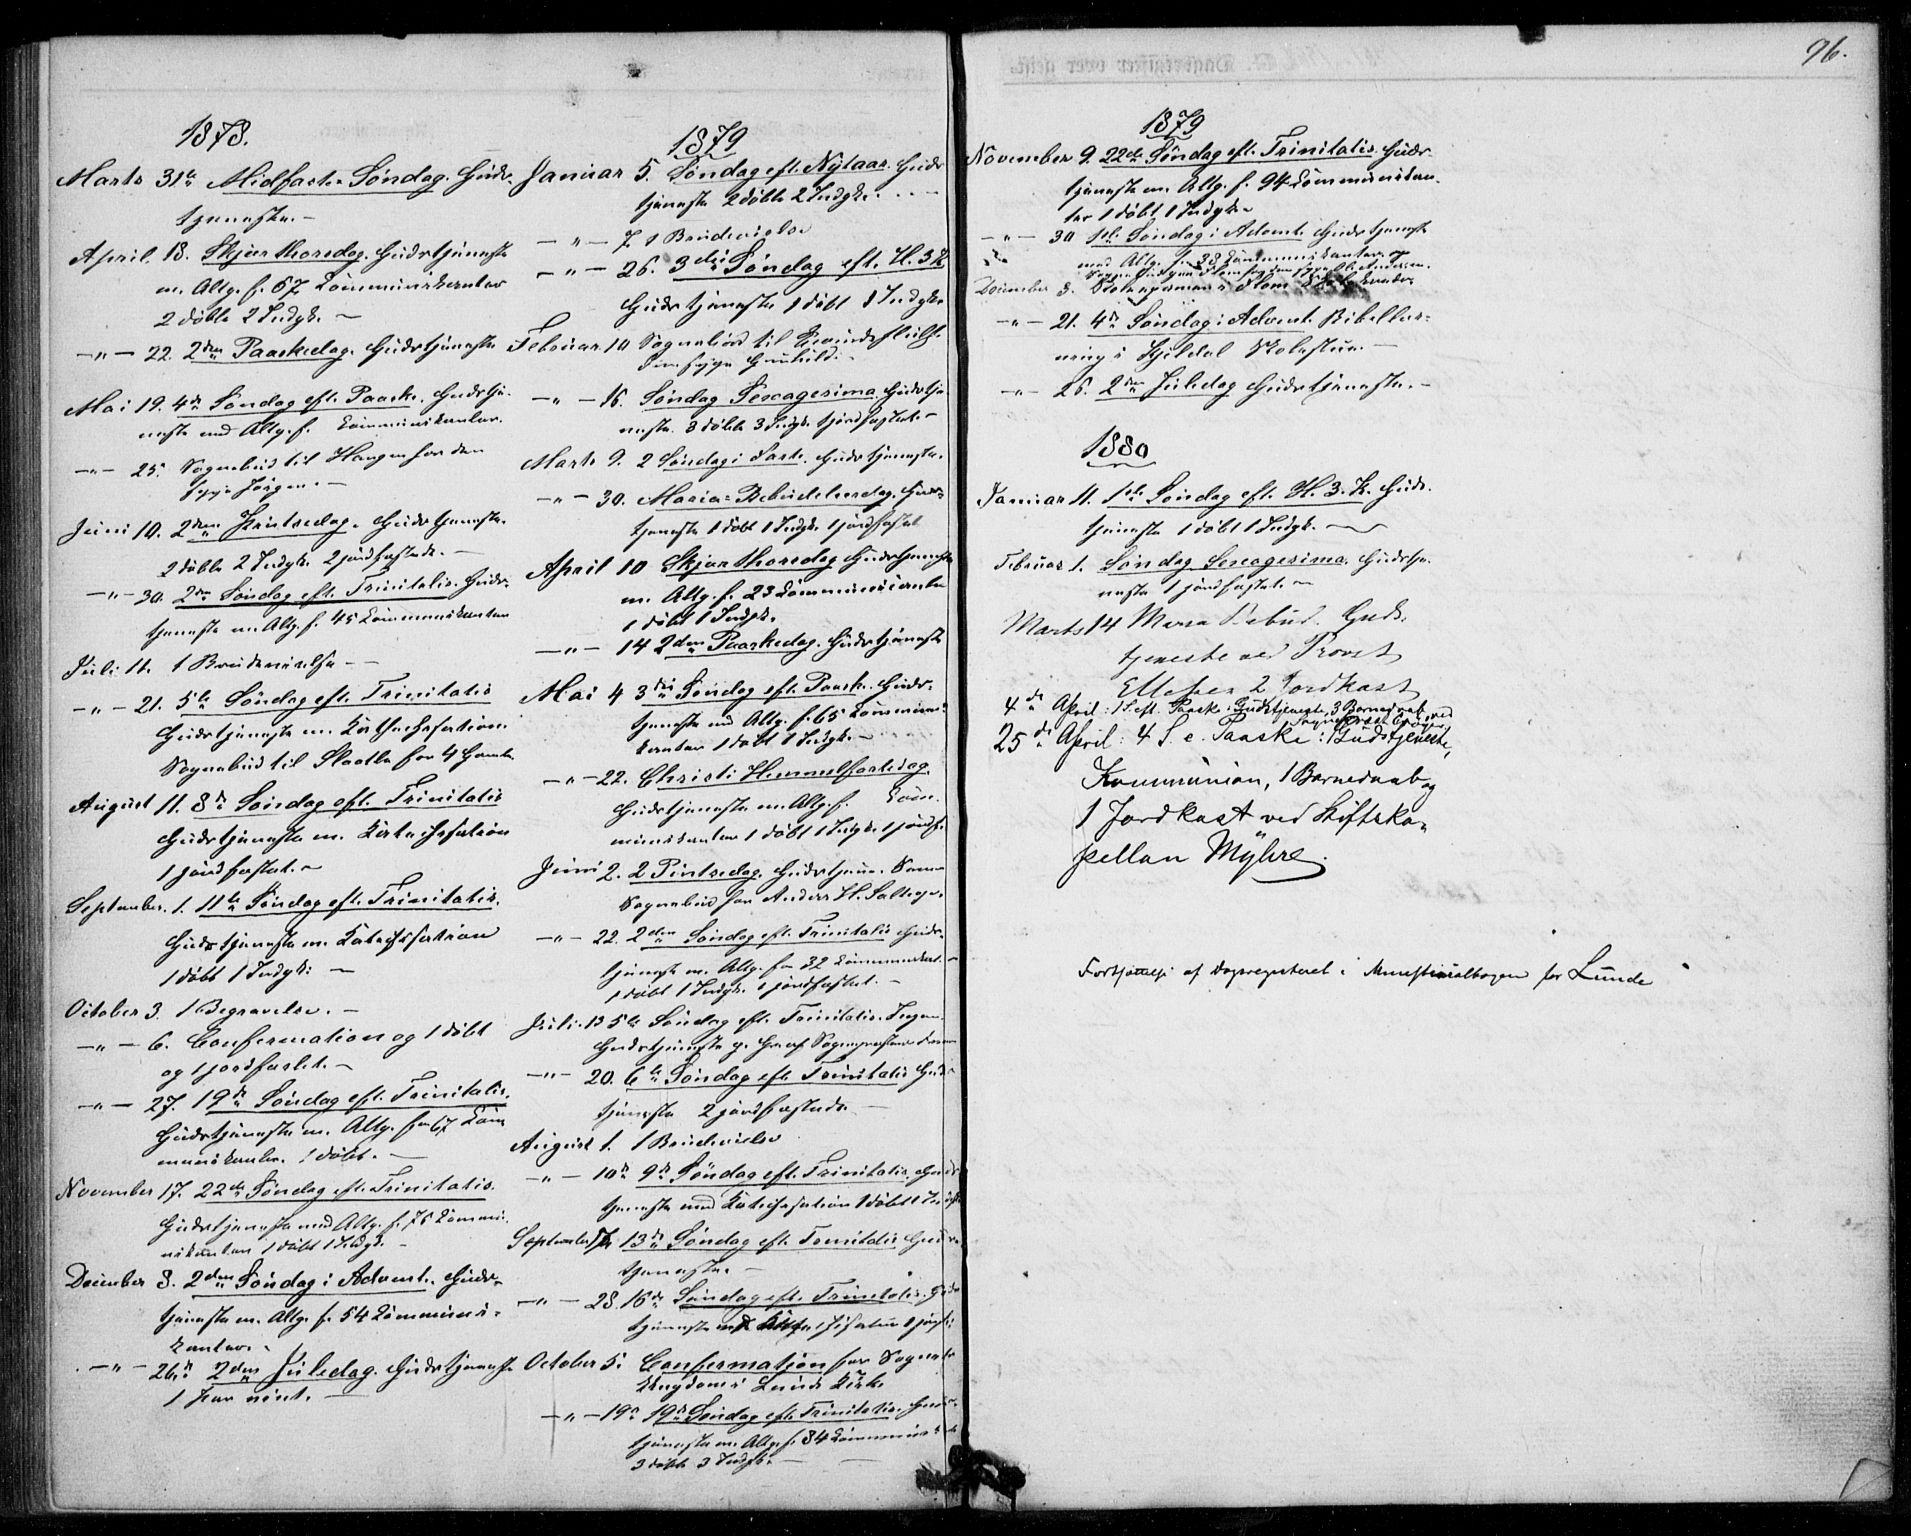 96.
1878.
Marts 31te Midfaste Søndag. Guds-
tjeneste. -
April 18. Skjærthorsdag. Gudstjeneste
m. Altg. f. 67 Kommunikanter
2 døbte 2 Indgk. -
-"- 22. 2den Paaskedag. Gudstjeneste
Mai 19. 4de Søndag eft. Paaske. Gudstje-
neste med Altg. f. Kommunikanter.
-"- 25. Sognebud til Haugen for den
syge Jørgen. -
Juni 10. 2den Pintsedag. Gudstjeneste.
2 døbte 2 Indgk. 2 jordfæstede. -
-"- 30. 2den Søndag eft. Trinitatis. Guds-
tjeneste m. Altg. f. 45 Kommunikanter
Juli 11. 1 Brudevielse - -
-"- 21. 5te Søndag eft. Trinitatis
Gudstjeneste m. Kathechesation
Sognebud til for 4 Gamle
August 11. 8de Søndag eft. Trinitatis
Gudstjeneste m. Katechesation
1 jordfæstet. -
September. 1. 11te Søndag eft. Trinitatis.
Gudstjeneste m. Katechisation
1 døbt 1 Indgk: -
October 3. 1 Begravelse. -
-"- 6. Confermation og 1 døbt
og 1 jordfæstet. -
-"- 27. 19de Søndag eft. Trinitatis.
Gudstjeneste m. Altg. for 67 Kom-
munikanter. 1 døbt. -
November 17. 22de Søndag eft. Trinitatis.
Gudstjeneste med Altg. f. 75 Kommu-
nikanter 1 døbt 1 Indgk. -
December 8. 2den Søndag i Advent. Guds-
tjeneste m. Altg. f. 54 Kommuni-
kanter. -
-"- 26de 2den Juledag. Gudstjeneste
1 Par viet. -
1879
Januar 5. Søndag eft. Nytaar. Guds-
tjeneste 2 døbte 2 Indgk. - - -
-"- 7. 1 Brudevielse
-"- 26. 3die Søndag eft. H. 3 K.
Gudstjeneste 1 døbt 1 Indgk.
Februar 10 Sognebud til
den syge Gunhild. -
-"- 16. Søndag Sexagesima. Gudstje-
neste. 3 døbte 3 Indgk. 1 jordfæstet. -
Marts 9. 2 Søndag i Faste. Gudstjeneste.
-"- 30. Maria-Bebudelsesdag. Guds-
tjeneste 1 døbt 1 Indgk. 1 jordfæstet
April 10 Skjærthorsdag Gudstjeneste
m. Altg. f. 23 Kommunikanter
1 døbt 1 Indgk.
-"- 14 2den Paaskedag. Gudstjeneste
Mai 4 3die Søndag eft. Paaske. Guds-
tjeneste med Altg. f. 65 Kommuni-
kanter 1 døbt 1 Indgk. -
-"- 22. Christi Himmelfartsdag.
Gudstjeneste m. Altg. f. Kom-
munikanter 1 døbt 1 Indgk. 1 jordf.
Juni 2. 2 Pintsedag. Gudstjene.
Sognebud for Anders H.
-"- 22. 2den Søndag eft. Trinitatis Guds-
tjeneste m. Altg. for 32 Kommunikant. -
1 døbt 1 Indgk. 1 jordfæstet. -
Juli. 13 5te Søndag eft. Trinitatis. Ingen
Gudstjeneste p. Gr. af Sognepræstens
-"- 20. 6te Søndag eft. Trinitatis Guds-
tjeneste 2 jordfæstede. -
August 1. 1 Brudevielse
-"- 10de 9de Søndag eft. Trinitatis. Guds-
tjeneste med Katechesation 1 døbt 1 Indgk
September 13de Søndag eft. Trinitatis Guds-
tjeneste. -
-"- 28. 16de Søndag eft. Trinitatis. Guds-
tjeneste
October 5. Confermation for Sognets
Ungdom i Lunde Kirke
-"- 19de 19de Søndag eft. Trinitatis. Guds-
tjeneste m. Altg. f. 84 Kommunik.
3 døbte 3 Indgk. -
1879
November 9. 22de Søndag eft. Trinitatis. Guds-
tjeneste m. Altg. f. 94 Kommunikan-
ter 1 døbt 1 Indgk. -
-"- 30 1ste Søndag i Advent. Gudstjeneste
med Altg. for 38 Kommunikanter
December 8. i Flom
-"- 21. 4de Søndag i Advent. Bibellæs-
ning i Skolestue. -
-"- 26. 2den Juledag Gudstjeneste. -
1880
Januar 11. 1ste Søndag eft. H. 3. K. Guds-
tjeneste 1 døbt 1 Indgk. -
Februar 1. Søndag Sexagesima. Gudstje-
neste 1 jordfæstet. -
Marts 14 Maria Bebud. Guds.
tjeneste ved Provst
Ellefsen 2 Jordkast
4de April: 1 S. eft. Paaske: Gudstjeneste, 3 Barnedaab ved
Sognepræst
25de April: 4 S. e. Paaske: 1 Gudstjeneste,
Kommunion, 1 Barnedaab og
1 Jordkast ved Stiftska-
pellan Myhre.
Fortsættelse af Dagsregisteret i Ministerialbogen for Lunde